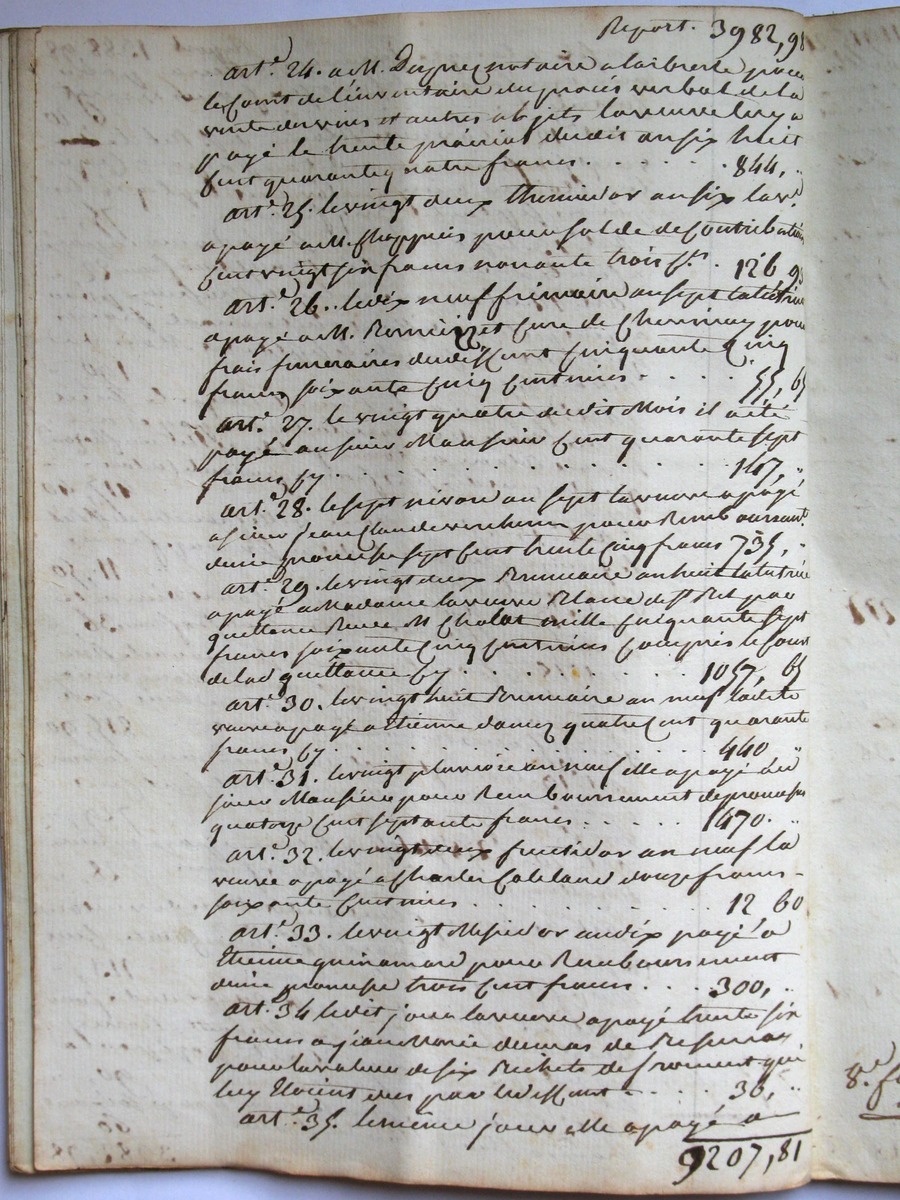 Report. 3982,98
art.e 24. a M. Dupuez notaire a larbresle pour
le Cout de l'inventaire du procés verbal de la
vente des vins et autres objets la veuve luy a
payé le trente prairial dudit an six huit
Cent quarante quatre francs. . . . . . 844, "
art.e 25. le vingt deux thermidor an six la v.e
a payé a M. Chappuis pour solde de Contributions
Cent vingt six francs nonante trois C.s . 126 93
art.e 26. le dix neuf frimaire an sept la tutrice
a payé a M. Curé de Chevinay pour
frais funeraires du deffunt Cinquante Cinq
francs soixante Cinq Centimes . . . . . 55, 65
art.e 27. le vingt quatre dudit Mois il a été
payé au sieur Maussier Cent quarante sept
francs Cy . . . . . . . . . . . 147, "
art.e 28. le sept nivose an sept la veuve a payé
a sieur Jean Claude pour Remboursement
d'une promesse sept Cent trente Cinq francs 735, "
art.e 29. le vingt deux Brumaire an huit la tutrice
a payé a Madame la veuve Blanc de St Bel par
quittance Reçue M. Cholat mille Cinquante sept
francs soixante Cinq Centimes Compris le Cout
de lad quittance Cy . . . . . . 1057, 65
art.e 30. le vingt huit Brumaire an neuf ladite
veuve a payé a Etienne quatre Cent quarante
francs Cy . . . . . . . . . . 440 "
art.e 31. le vingt pluviose an neuf elle a payé au
sieur Maussier pour Remboursement de promesse
quatorze Cent septante francs . . . . . 1470. "
art.e 32. le vingt deux fructidor an neuf la
veuve a payé a Charles douze francs -
soixante Centimes . . . . . . . . 12 60
art.e 33. le vingt Messidor an dix payé a
Etienne pour Remboursement
d'une promesse trois Cent francs . . . 300, "
art. 34 ledit jour la veuve a payé trente six
francs a Jean Marie Dumas de
pour la valeur de six Bichets de froment qui
luy Etoient dus par le deffunt . . . . 36, "
art.e 35. le même jour elle a payé a
9207,81